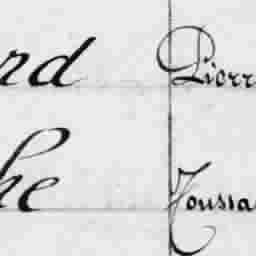 rd Pierr
he Toussa